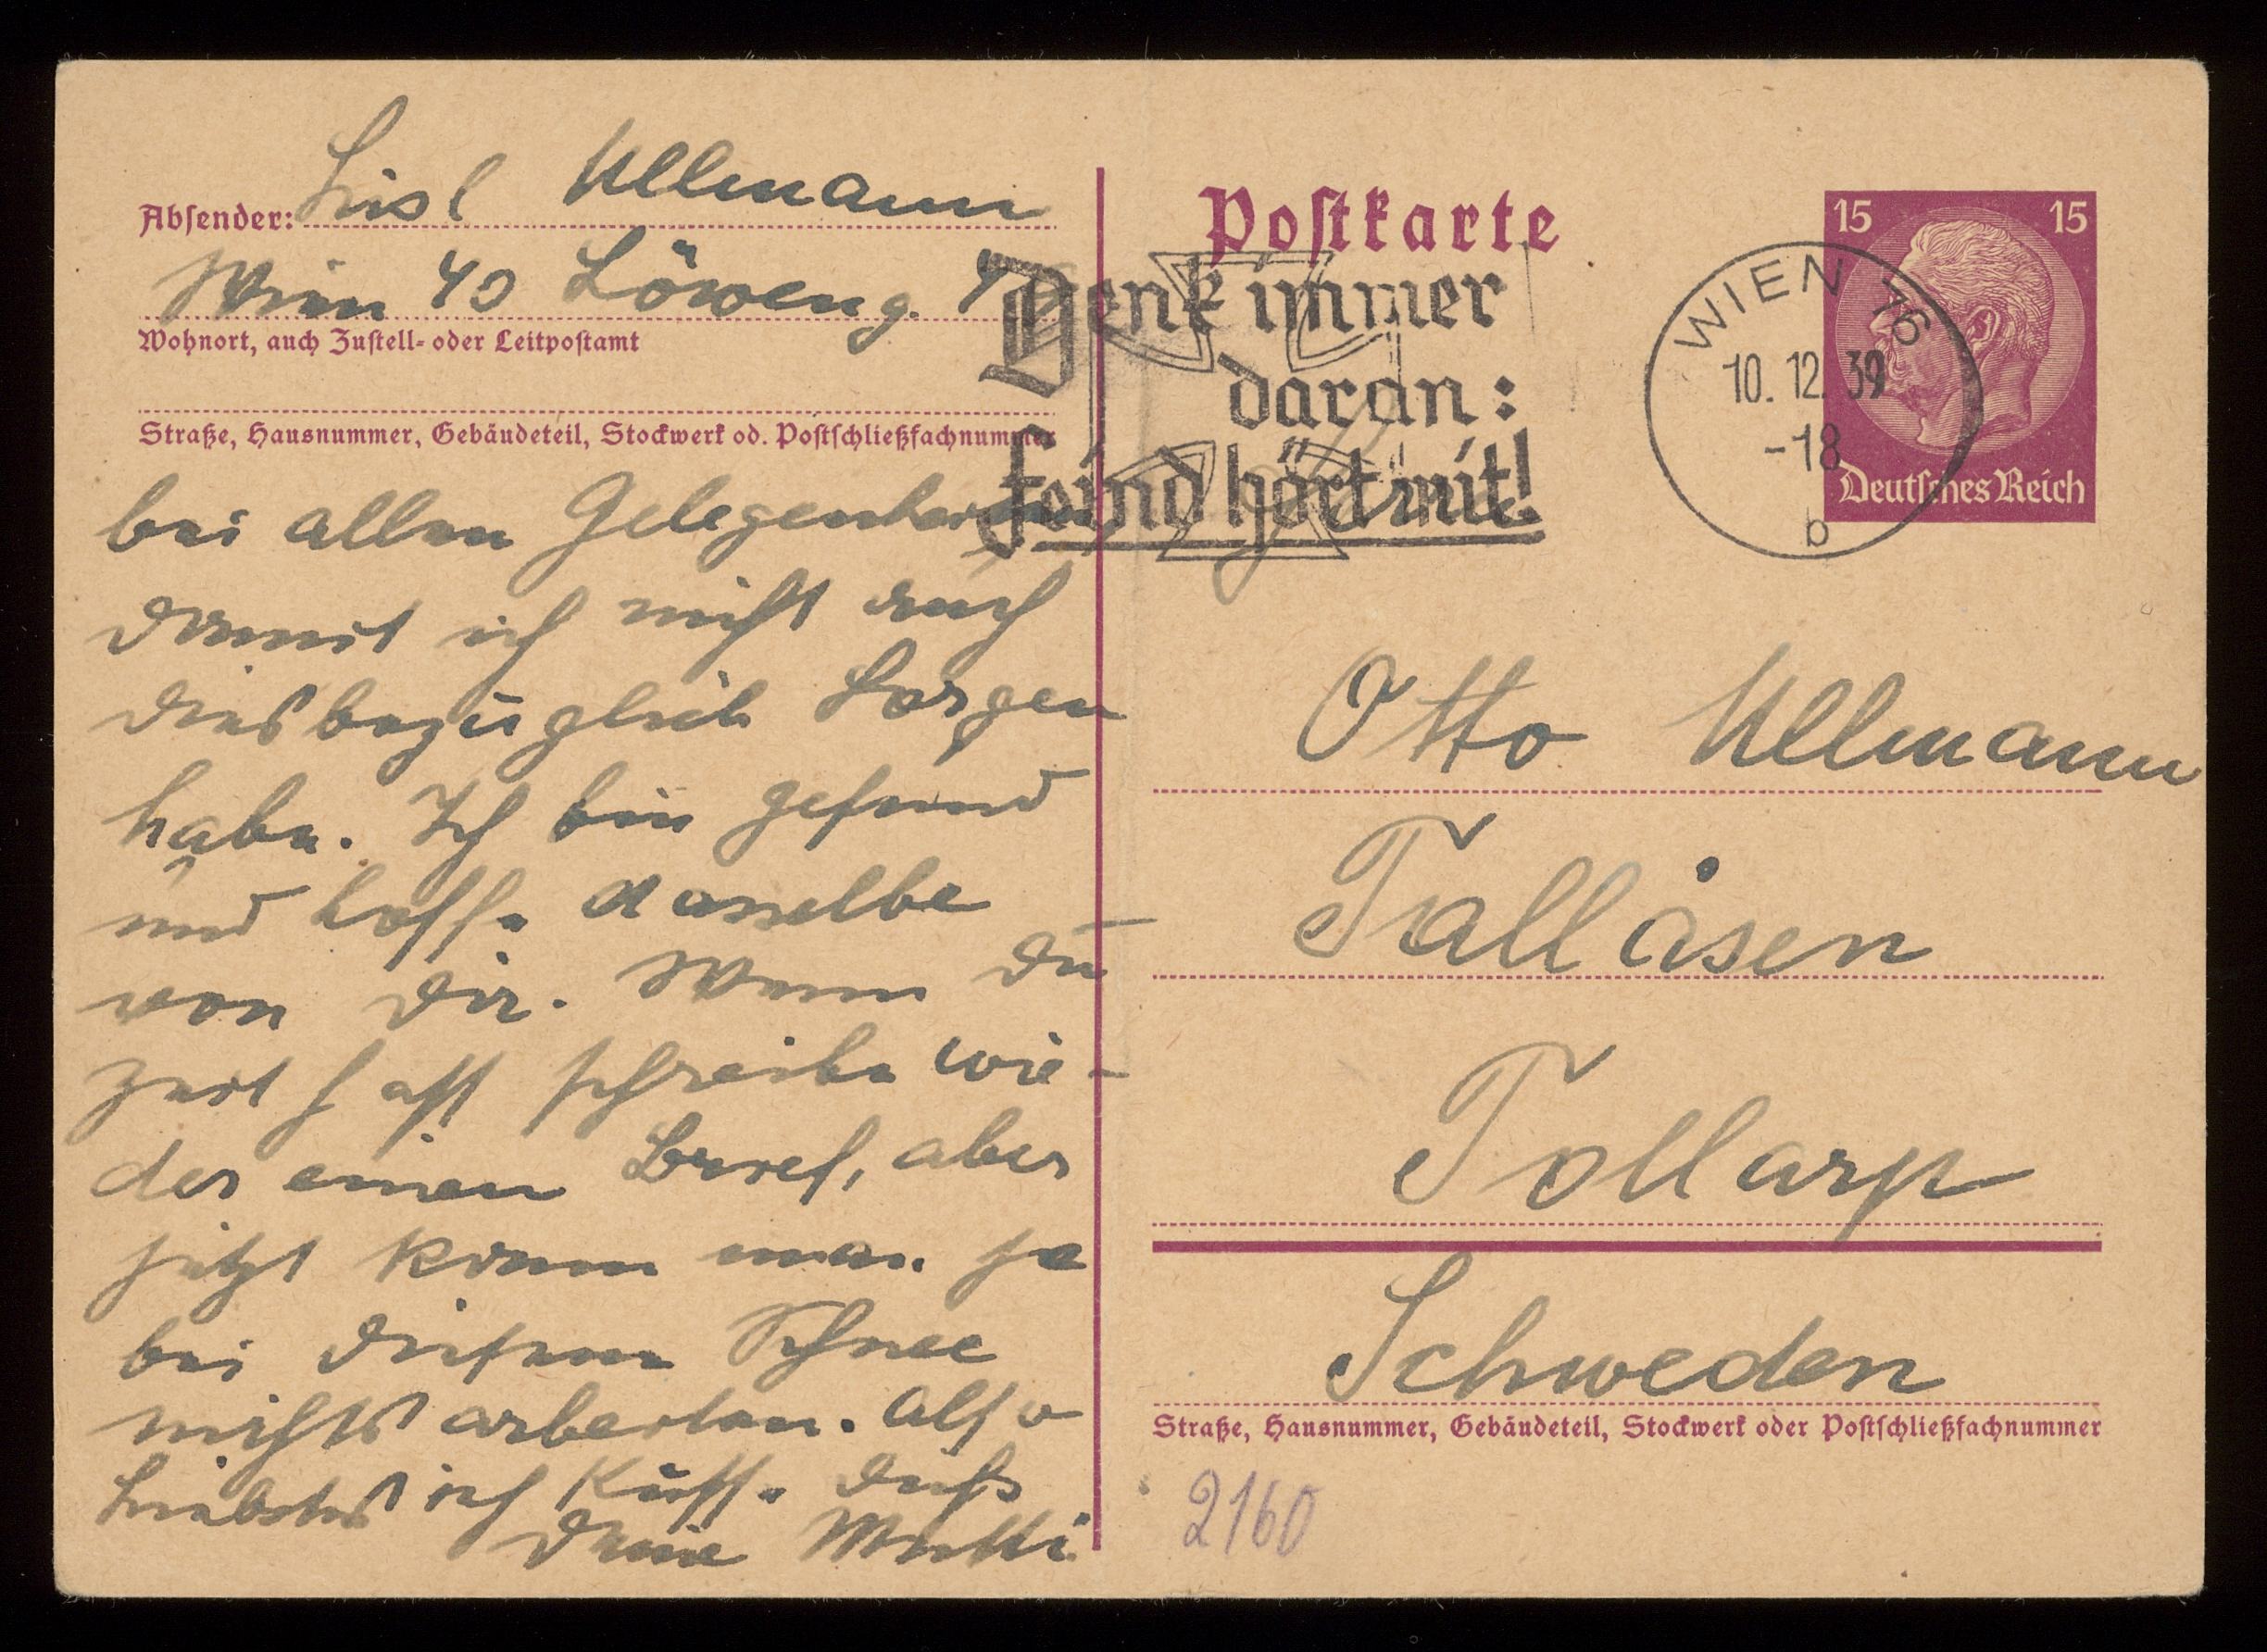 Absender: Lisl Ullmann
Wien 40 Löweng.
Wohnort, auch Zustell- oder Leitpostamt
Straße, Hausnummer, Gebäudeteil, Stockwerk od. Postschließfachnummer
bei allen Gelegenheiten
damit ich nicht auch
diesbezüglich Sorgen
habe. Ich bin gesund
und hoffe dasselbe
von dir. Wenn du
Zeit hast schreibe wie-
der einen Brief, aber
jetzt kann man ja
bei diesem Schnee
nichts arbeiten. Also
Liebstes ich küsse dich
Deine Mutti
Postkarte
Denk immer
daran:
Feind hört mit!
15 15
Deutsches Reich
WIEN 76
10.12.39
-18
b
Otto Ullmann
Tallåsen
Tollarp
Schweden
Straße, Hausnummer, Gebäudeteil, Stockwerk oder Postschließfachnummer
2160